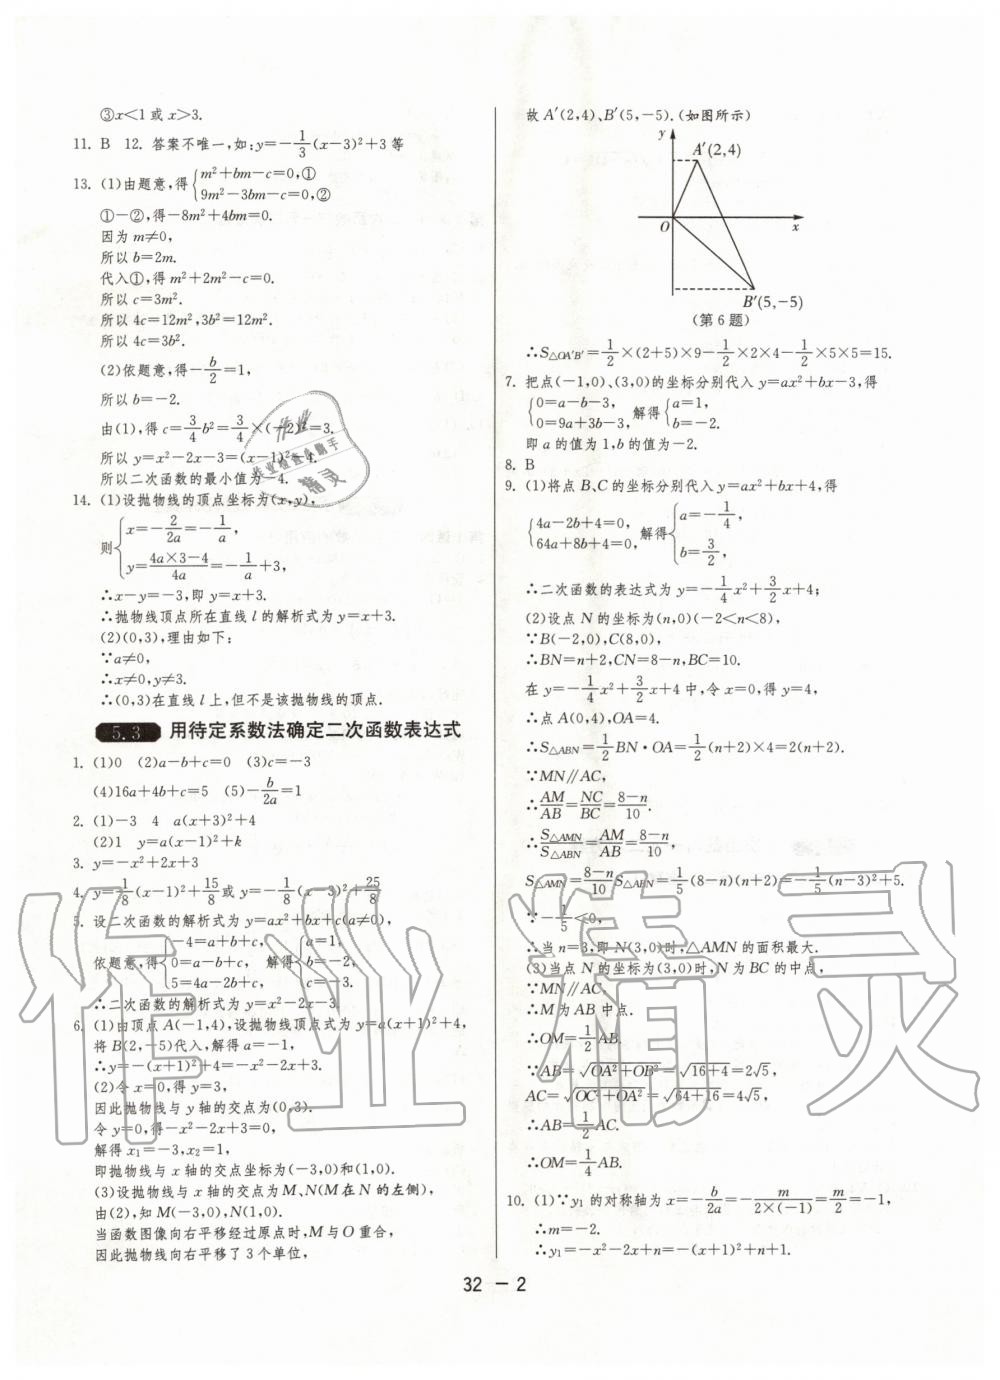 ③x<1或x>3.
11. B 12. 答案不唯一,如:y=-1/3(x-3)²+3等
13. (1)由题意,得{m²+bm-c=0,①
9m²-3bm-c=0,②
①-②,得-8m²+4bm=0.
因为m≠0,
所以b=2m.
代入①,得m²+2m²-c=0.
所以c=3m².
所以4c=12m²,3b²=12m².
所以4c=3b².
(2)依题意,得-b/2=1,
所以b=-2.
由(1),得c=3/4b²=3/4×(-2)²=3.
所以y=x²-2x-3=(x-1)²-4.
所以二次函数的最小值为-4.
14. (1)设抛物线的顶点坐标为(x,y),
则{x=-2/2a=-1/a,
y=(4a×3-4)/4a=-1/a+3,
∴x-y=-3,即y=x+3.
∴抛物线顶点所在直线l的解析式为y=x+3.
(2)(0,3),理由如下:
∵a≠0,
∴x≠0,y≠3.
∴(0,3)在直线l上,但不是该抛物线的顶点.
5.3 用待定系数法确定二次函数表达式
1. (1)0 (2)a-b+c=0 (3)c=-3
(4)16a+4b+c=5 (5)-b/2a=1
2. (1)-3 4 a(x+3)²+4
(2)1 y=a(x-1)²+k
3. y=-x²+2x+3
4. y=1/8(x-1)²+15/8或y=-1/8(x-3)²+25/8
5. 设二次函数的解析式为y=ax²+bx+c(a≠0),
依题意,得{-4=a+b+c,
0=a-b+c,
5=4a-2b+c,
解得{a=1,
b=-2,
c=-3.
∴二次函数的解析式为y=x²-2x-3.
6. (1)由顶点A(-1,4),设抛物线顶点式为y=a(x+1)²+4,
将B(2,-5)代入,解得a=-1,
∴y=-(x+1)²+4=-x²-2x+3.
(2)令x=0,得y=3,
因此抛物线与y轴的交点为(0,3).
令y=0,得-x²-2x+3=0,
解得x₁=-3,x₂=1,
即抛物线与x轴的交点坐标为(-3,0)和(1,0).
(3)设抛物线与x轴的交点为M、N(M在N的左侧),
由(2),知M(-3,0),N(1,0).
当函数图像向右平移经过原点时,M与O重合,
因此抛物线向右平移了3个单位,
故A′(2,4)、B′(5,-5).(如图所示)
y
A′(2,4)
O
x
B′(5,-5)
(第6题)
∴S△OA′B′=1/2×(2+5)×9-1/2×2×4-1/2×5×5=15.
7. 把点(-1,0)、(3,0)的坐标分别代入y=ax²+bx-3,得
{0=a-b-3,
0=9a+3b-3,
解得{a=1,
b=-2.
即a的值为1,b的值为-2.
8. B
9. (1)将点B、C的坐标分别代入y=ax²+bx+4,得
{4a-2b+4=0,
64a+8b+4=0,
解得{a=-1/4,
b=3/2,
∴二次函数的表达式为y=-1/4x²+3/2x+4;
(2)设点N的坐标为(n,0)(-2<n<8),
∵B(-2,0),C(8,0),
∴BN=n+2,CN=8-n,BC=10.
在y=-1/4x²+3/2x+4中,令x=0,得y=4,
∴点A(0,4),OA=4.
∴S△ABN=1/2BN·OA=1/2(n+2)×4=2(n+2).
∵MN∥AC,
∴AM/AB=NC/BC=(8-n)/10.
∴S△AMN/S△ABN=AM/AB=(8-n)/10
S△AMN=(8-n)/10 S△ABN=1/5(8-n)(n+2)=-1/5(n-3)²+5.
∵-1/5<0,
∴当n=3,即N(3,0)时,△AMN的面积最大.
(3)当点N的坐标为(3,0)时,N为BC的中点,
∵MN∥AC,
∴M为AB中点.
∴OM=1/2AB.
∵AB=√(OA²+OB²)=√(16+4)=2√5,
AC=√(OC²+OA²)=√(64+16)=4√5,
∴AB=1/2AC.
∴OM=1/4AB.
10. (1)∵y₁的对称轴为x=-b/2a=-m/(2×(-1))=m/2=-1,
∴m=-2.
∴y₁=-x²-2x+n=-(x+1)²+n+1.
32 - 2
作业精灵
作业检查小助手